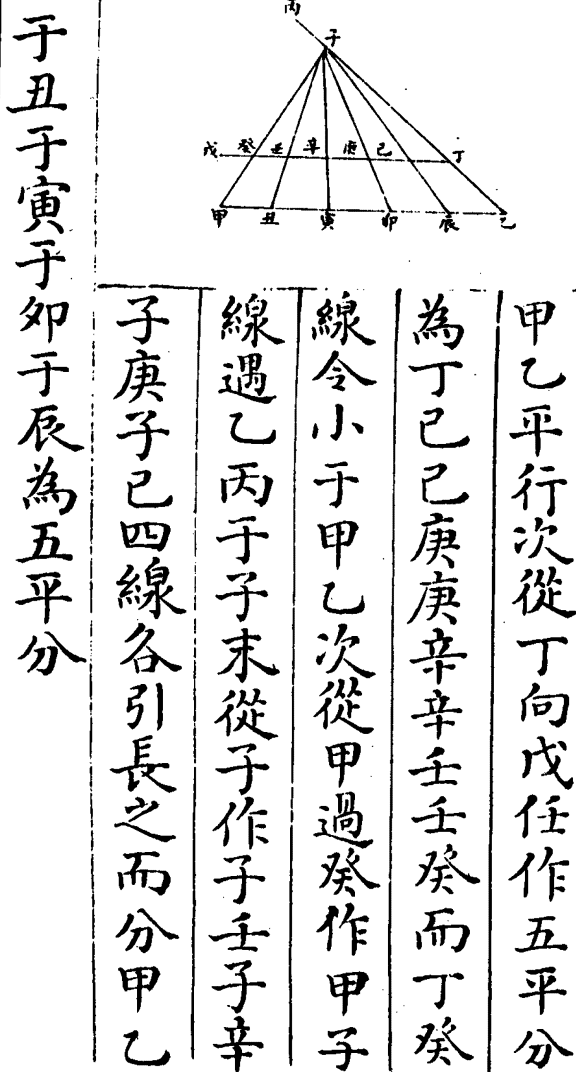 丙
子
戊 癸 壬 辛 庚 已 丁
甲 丑 寅 卯 辰 乙
甲乙平行次從丁向戊任作五平分
為丁已已庚庚辛辛壬壬癸而丁癸
線令小于甲乙次從甲過癸作甲子
線遇乙丙于子末從子作子壬子辛
子庚子已四線各引長之而分甲乙
于丑于寅于卯于辰為五平分